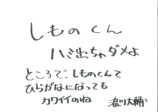 しものくん
ハミ出ちゃダメよ
ところで、しものくんて
ひらがなになっても
カワイイのね